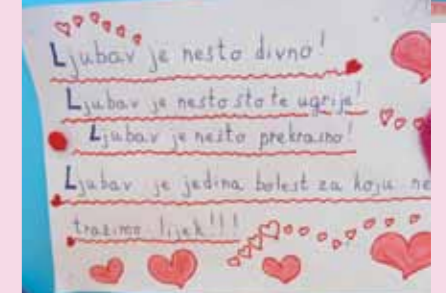 Ljubav je nešto divno!
Ljubav je nešto što te ugrije!
Ljubav je nešto prekrasno!
Ljubav je jedina bolest za koju ne
tražimo lijek!!!